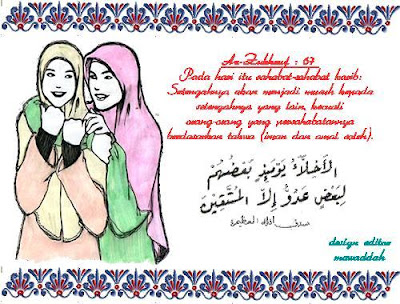 Az-Zukhruf : 67
Pada hari itu sahabat-sahabat karib:
Setengahnya akan menjadi musuh kepada
setengahnya yang lain, kecuali
orang-orang yang persahabatannya
berdasarkan takwa (iman dan amal soleh).
الأَخِلَّاءُ يَوْمَئِذٍ بَعْضُهُمْ
لِبَعْضٍ عَدُوٌّ إِلَّا الْمُتَّقِينَ
صدق الله العظيم
design editor
mawaddah